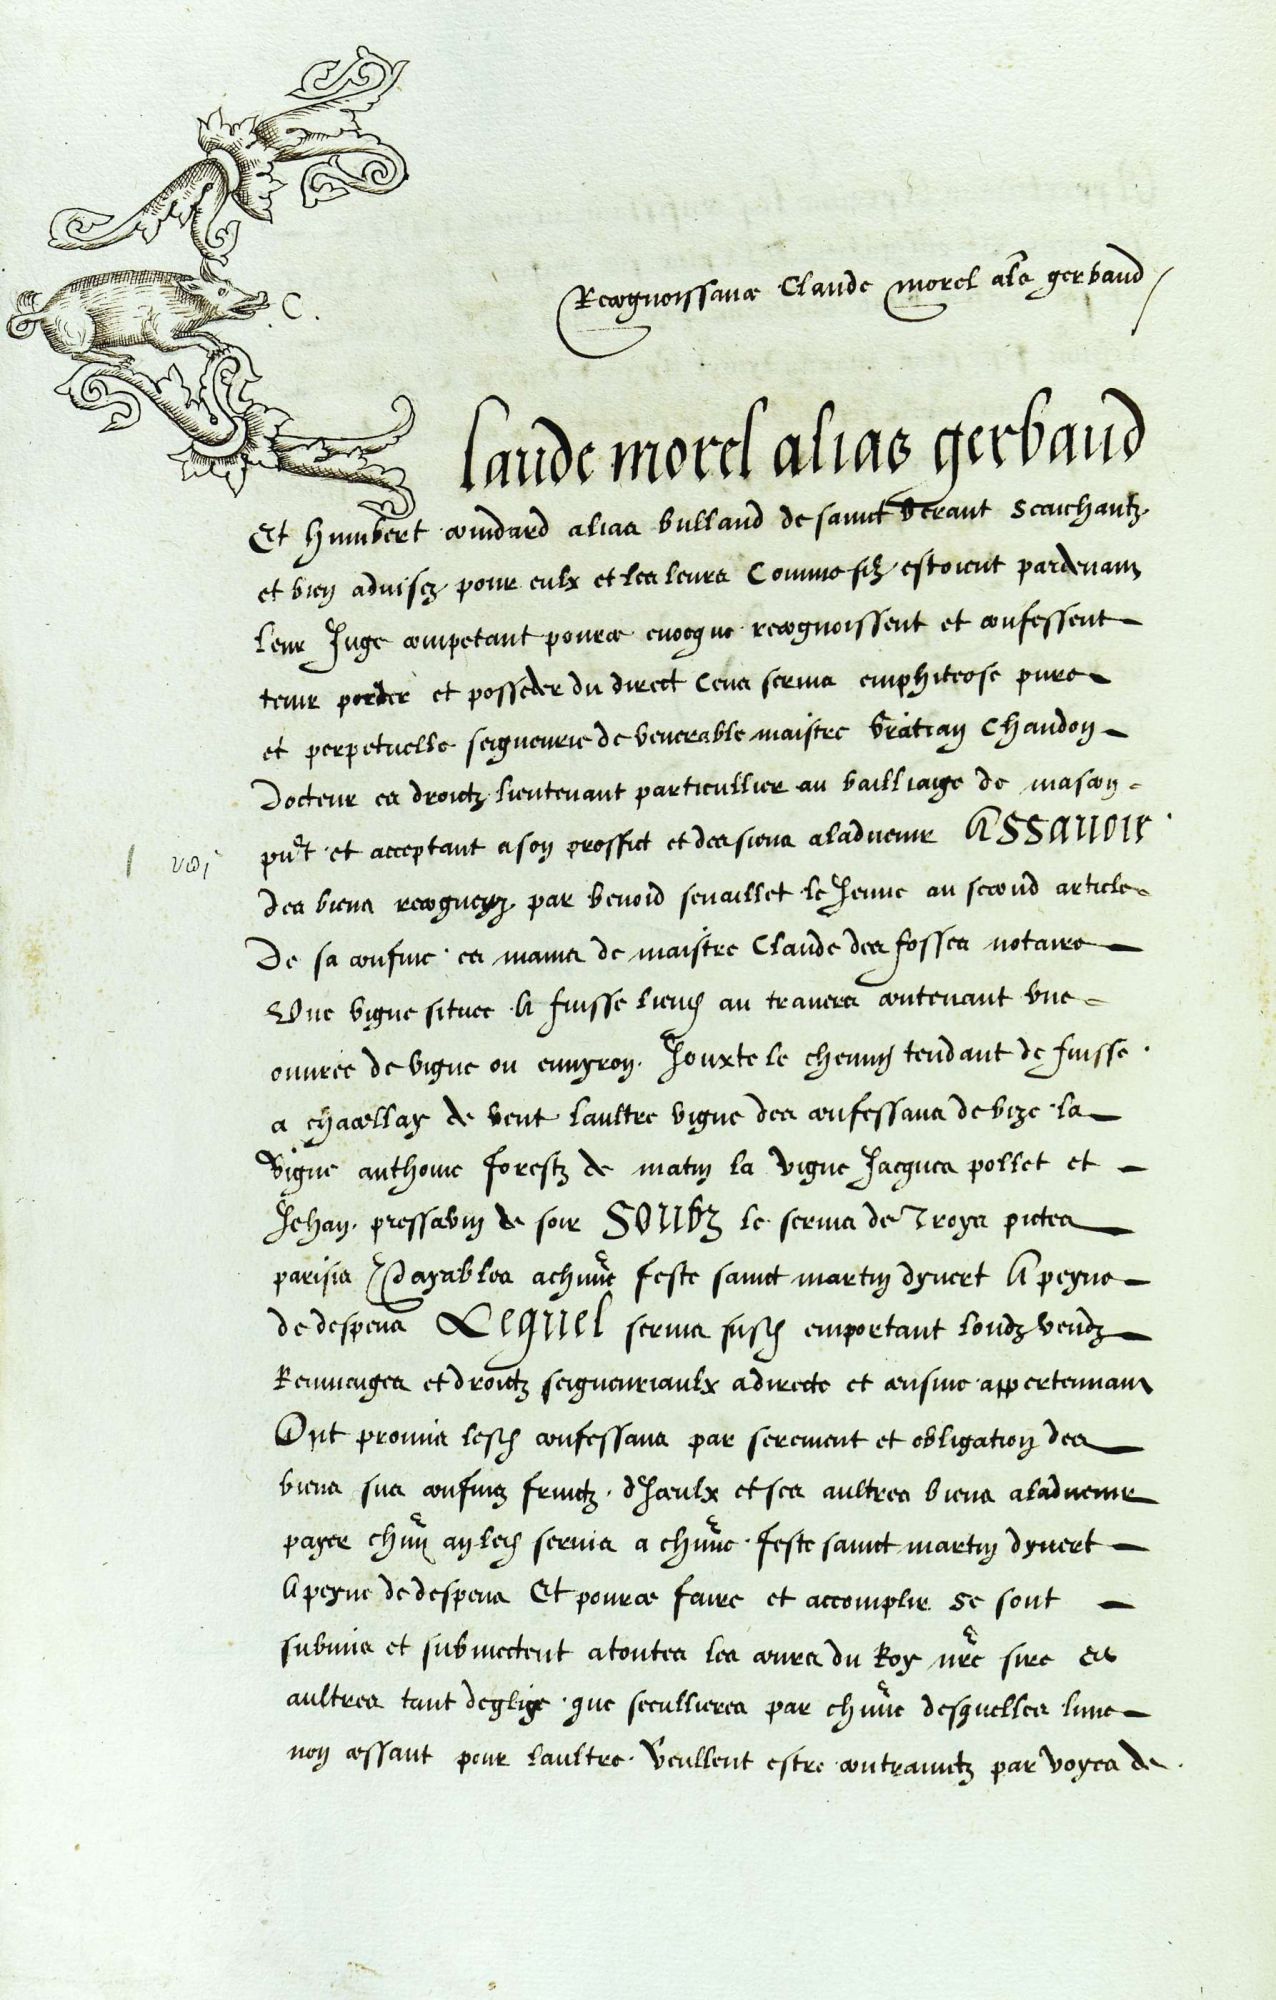 Recognoissance Claude morel als gerbaud
.C.
laude morel alias gerbaud
Et humbert coindard alias bulland de sainct Verant Scaichantz
et bien advisez pour eulx et les leurs Comme silz estoient pardevant
leur Juge competant pource evocque recognoissent et confessent
tenir porter et posseder du direct Cens servis emphiteose pure
et perpetuelle seigneurie de venerable maistre Chandon
Docteur es droictz lieutenant particullier au bailliaige de mascon
pnt et acceptant a son proffict et des siens aladvenir ASSAVOIR
des biens recogneuz par benoid sevaillet le Jeune au second article
De sa confine es mains de maistre Claude des fosses notaire
Une vigne situee A fuisse lieud au travers contenant une
ouvree de vigne ou environ Jouxte le chemin tendant de fuisse
a chacellay de vent laultre vigne des confessans de bize la
Vigne anthoine forestz de matin la vigne Jacques pollet et
Jehan pressavin de soir SOUBZ le servis de Troys pictes
parisis Payables a chune feste sainct martin dyvert A peyne
de despens LEQUEL servis susd emportant loudz vendz
Remuenges et droictz seigneuriaulx a directe et censive appertenant
Ont promis lesd confessans par serement et obligation des
biens sus confins fruictz d'Jceulx et ses aultres biens aladvenir
payer chun an led servis a chune feste sainct martin dyvert
A peyne de despens Et pource faire et accomplir Se sont
submis et submectent a toutes les cours du Roy nre sire et
aultres tant deglise que secullieres par chune desquelles lune
non cessant pour laultre Veullent estre contrainctz par voyes de